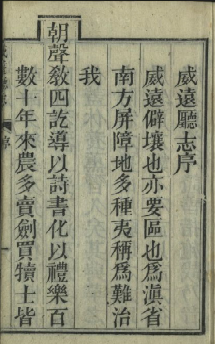 威遠廳志序
威遠僻壤也亦要區也為滇省
南方屏障地多種夷稱為難治
我
朝聲敎四訖導以詩書化以禮樂百
數十年來農多賣劍買犢士皆